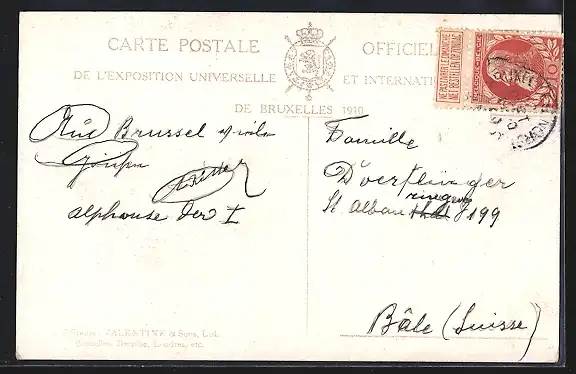 CARTE POSTALE OFFICIEL
DE L'EXPOSITION UNIVERSELLE ET INTERNATI
DE BRUXELLES 1910
NE PAS LIVRER LE DIMANCHE
NIET BESTELLEN OP ZONDAG
10
Aus Brussel viele
Alphonse der I
Famille
Doerflinger
St Alban ring 199
Bâle (Suisse)
VALENTINE & Sons, Ltd.
Bruxelles, Dundee, Londres, etc.